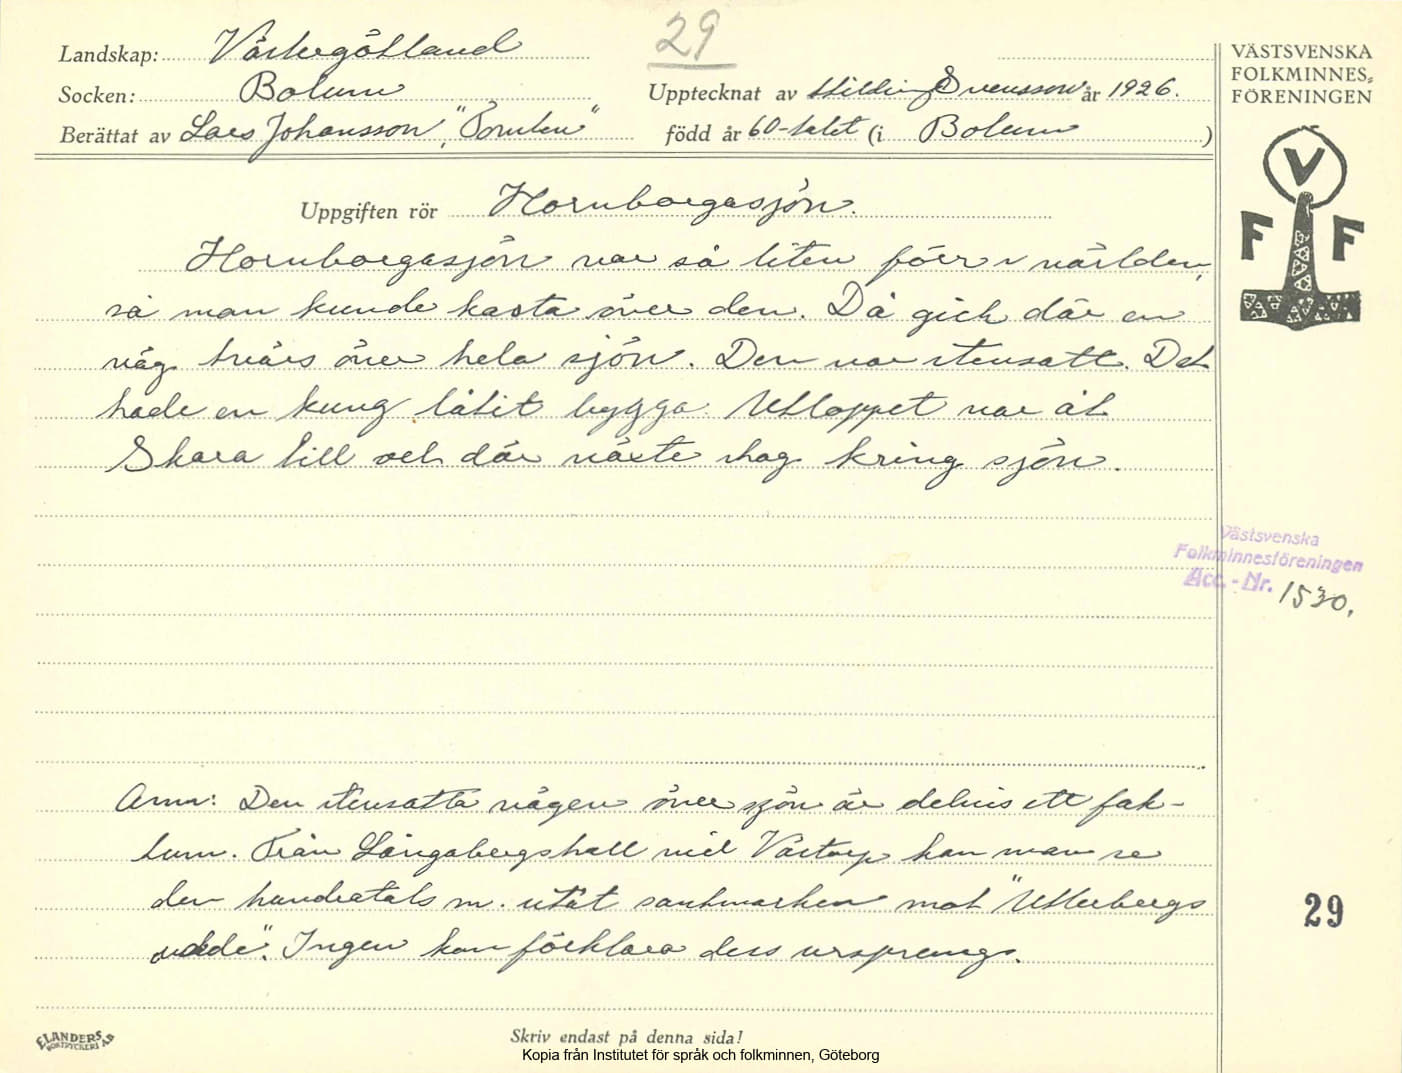 29
Landskap: Västergötland
Socken: Bolum
Upptecknat av Hilding Svensson år 1926.
Berättat av Lars Johansson, "Pomten"
född år 60-talet (i Bolum )
VÄSTSVENSKA
FOLKMINNES-
FÖRENINGEN
V
F F
Uppgiften rör Hornborgasjön.
Hornborgasjön var så liten förr i världen,
så man kunde kasta över den. Då gick där en
väg tvärs över hela sjön. Den var stensatt. Det
hade en kung låtit bygga. Utloppet var åt
Skara till och där växte skog kring sjön.
Västsvenska
Folkminnesföreningen
Acc.-Nr. 1530.
Anm: Den stensatta vägen över sjön är delvis ett fak-
tum. Från Långabergshall vid Västorp kan man se
den hundratals m. utåt sankmarken mot "Utterbergs
udde". Ingen kan förklara dess ursprung.
29
ELANDERS
BOKTRYCKERI AB
Skriv endast på denna sida!
Kopia från Institutet för språk och folkminnen, Göteborg